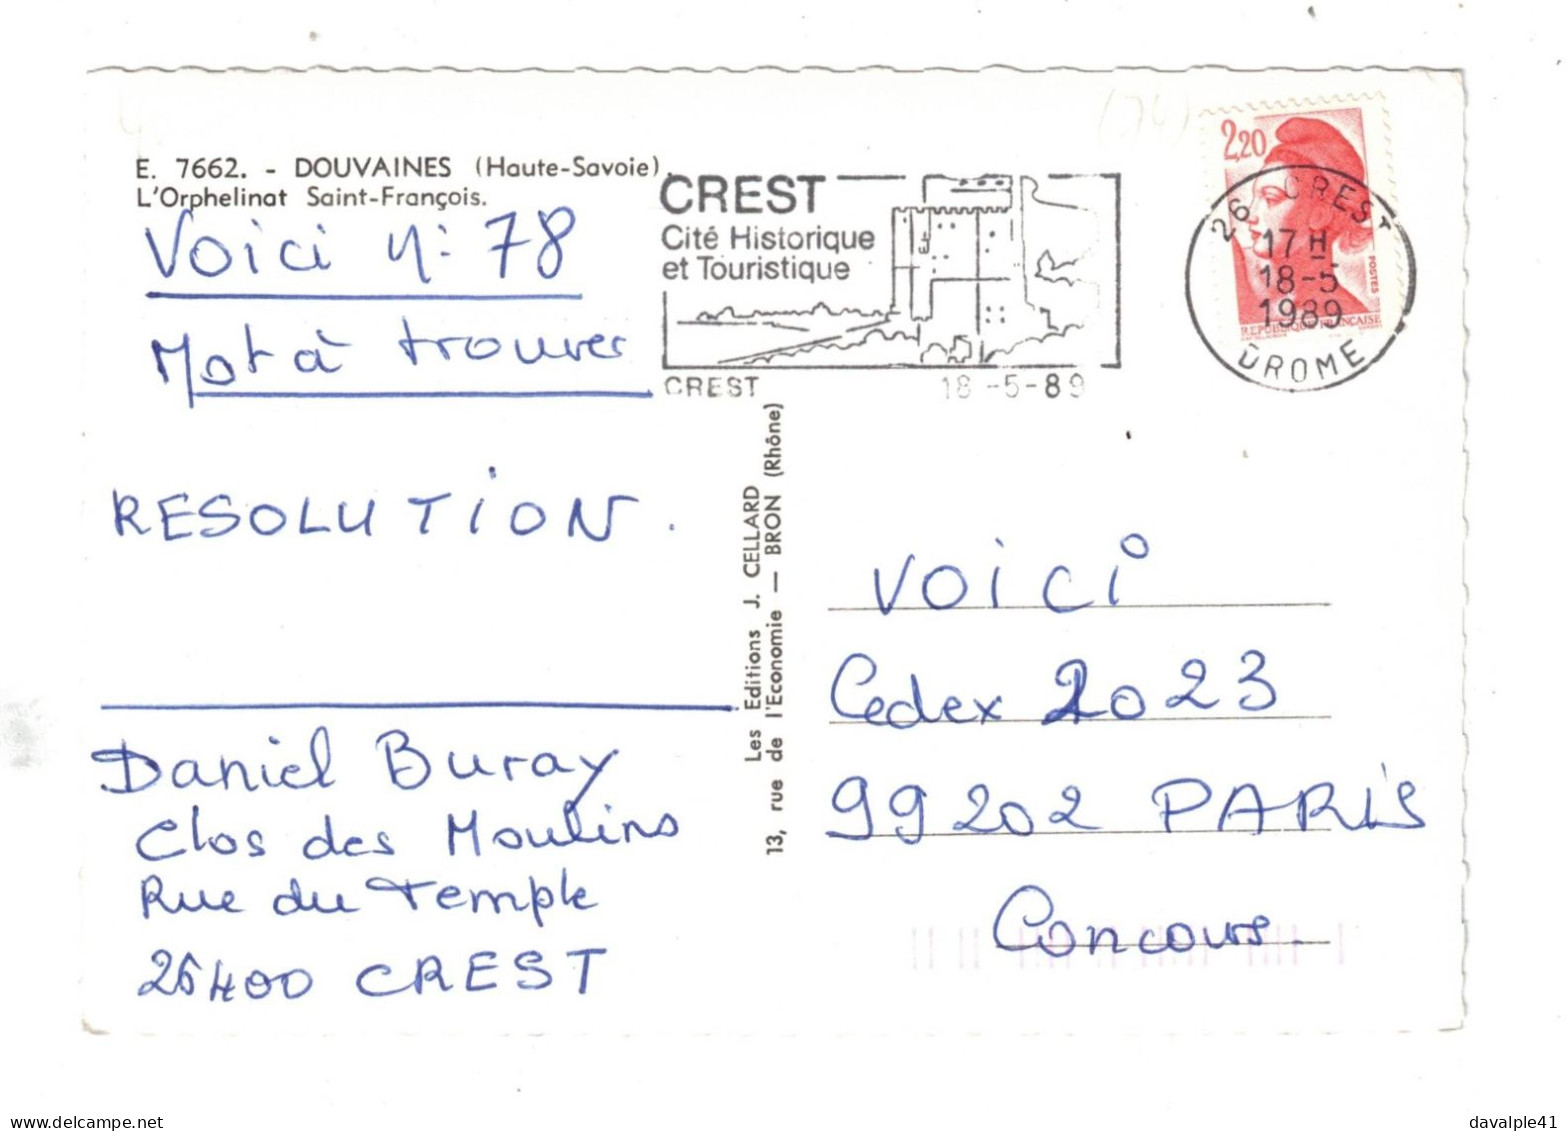 (74)
E. 7662. - DOUVAINES (Haute-Savoie).
L'Orphelinat Saint-François.
Voici n: 78
Mot à trouver
RESOLUTION.
Daniel Buray
Clos des Moulins
Rue du Temple
26400 CREST
CREST
Cité Historique
et Touristique
CREST 18-5-89
2,20
POSTES
REPUBLIQUE FRANÇAISE
26 CREST
17 H
18-5
1989
DROME
Les Editions J. CELLARD
13, rue de l'Economie — BRON (Rhône)
VOICI
Cedex 2023
99202 PARIS
Concours
delcampe.net
davalple41